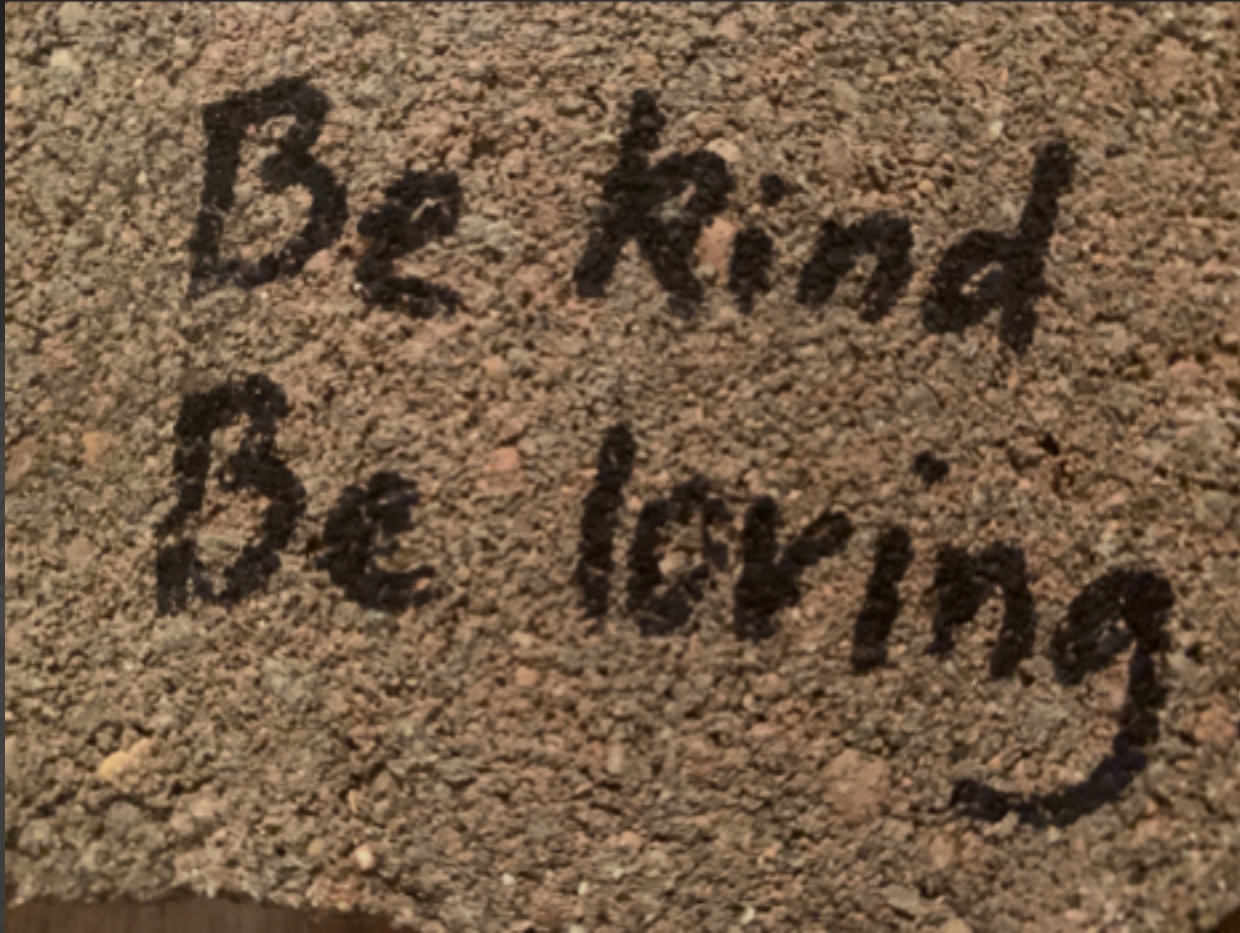 Be kind
Be loving